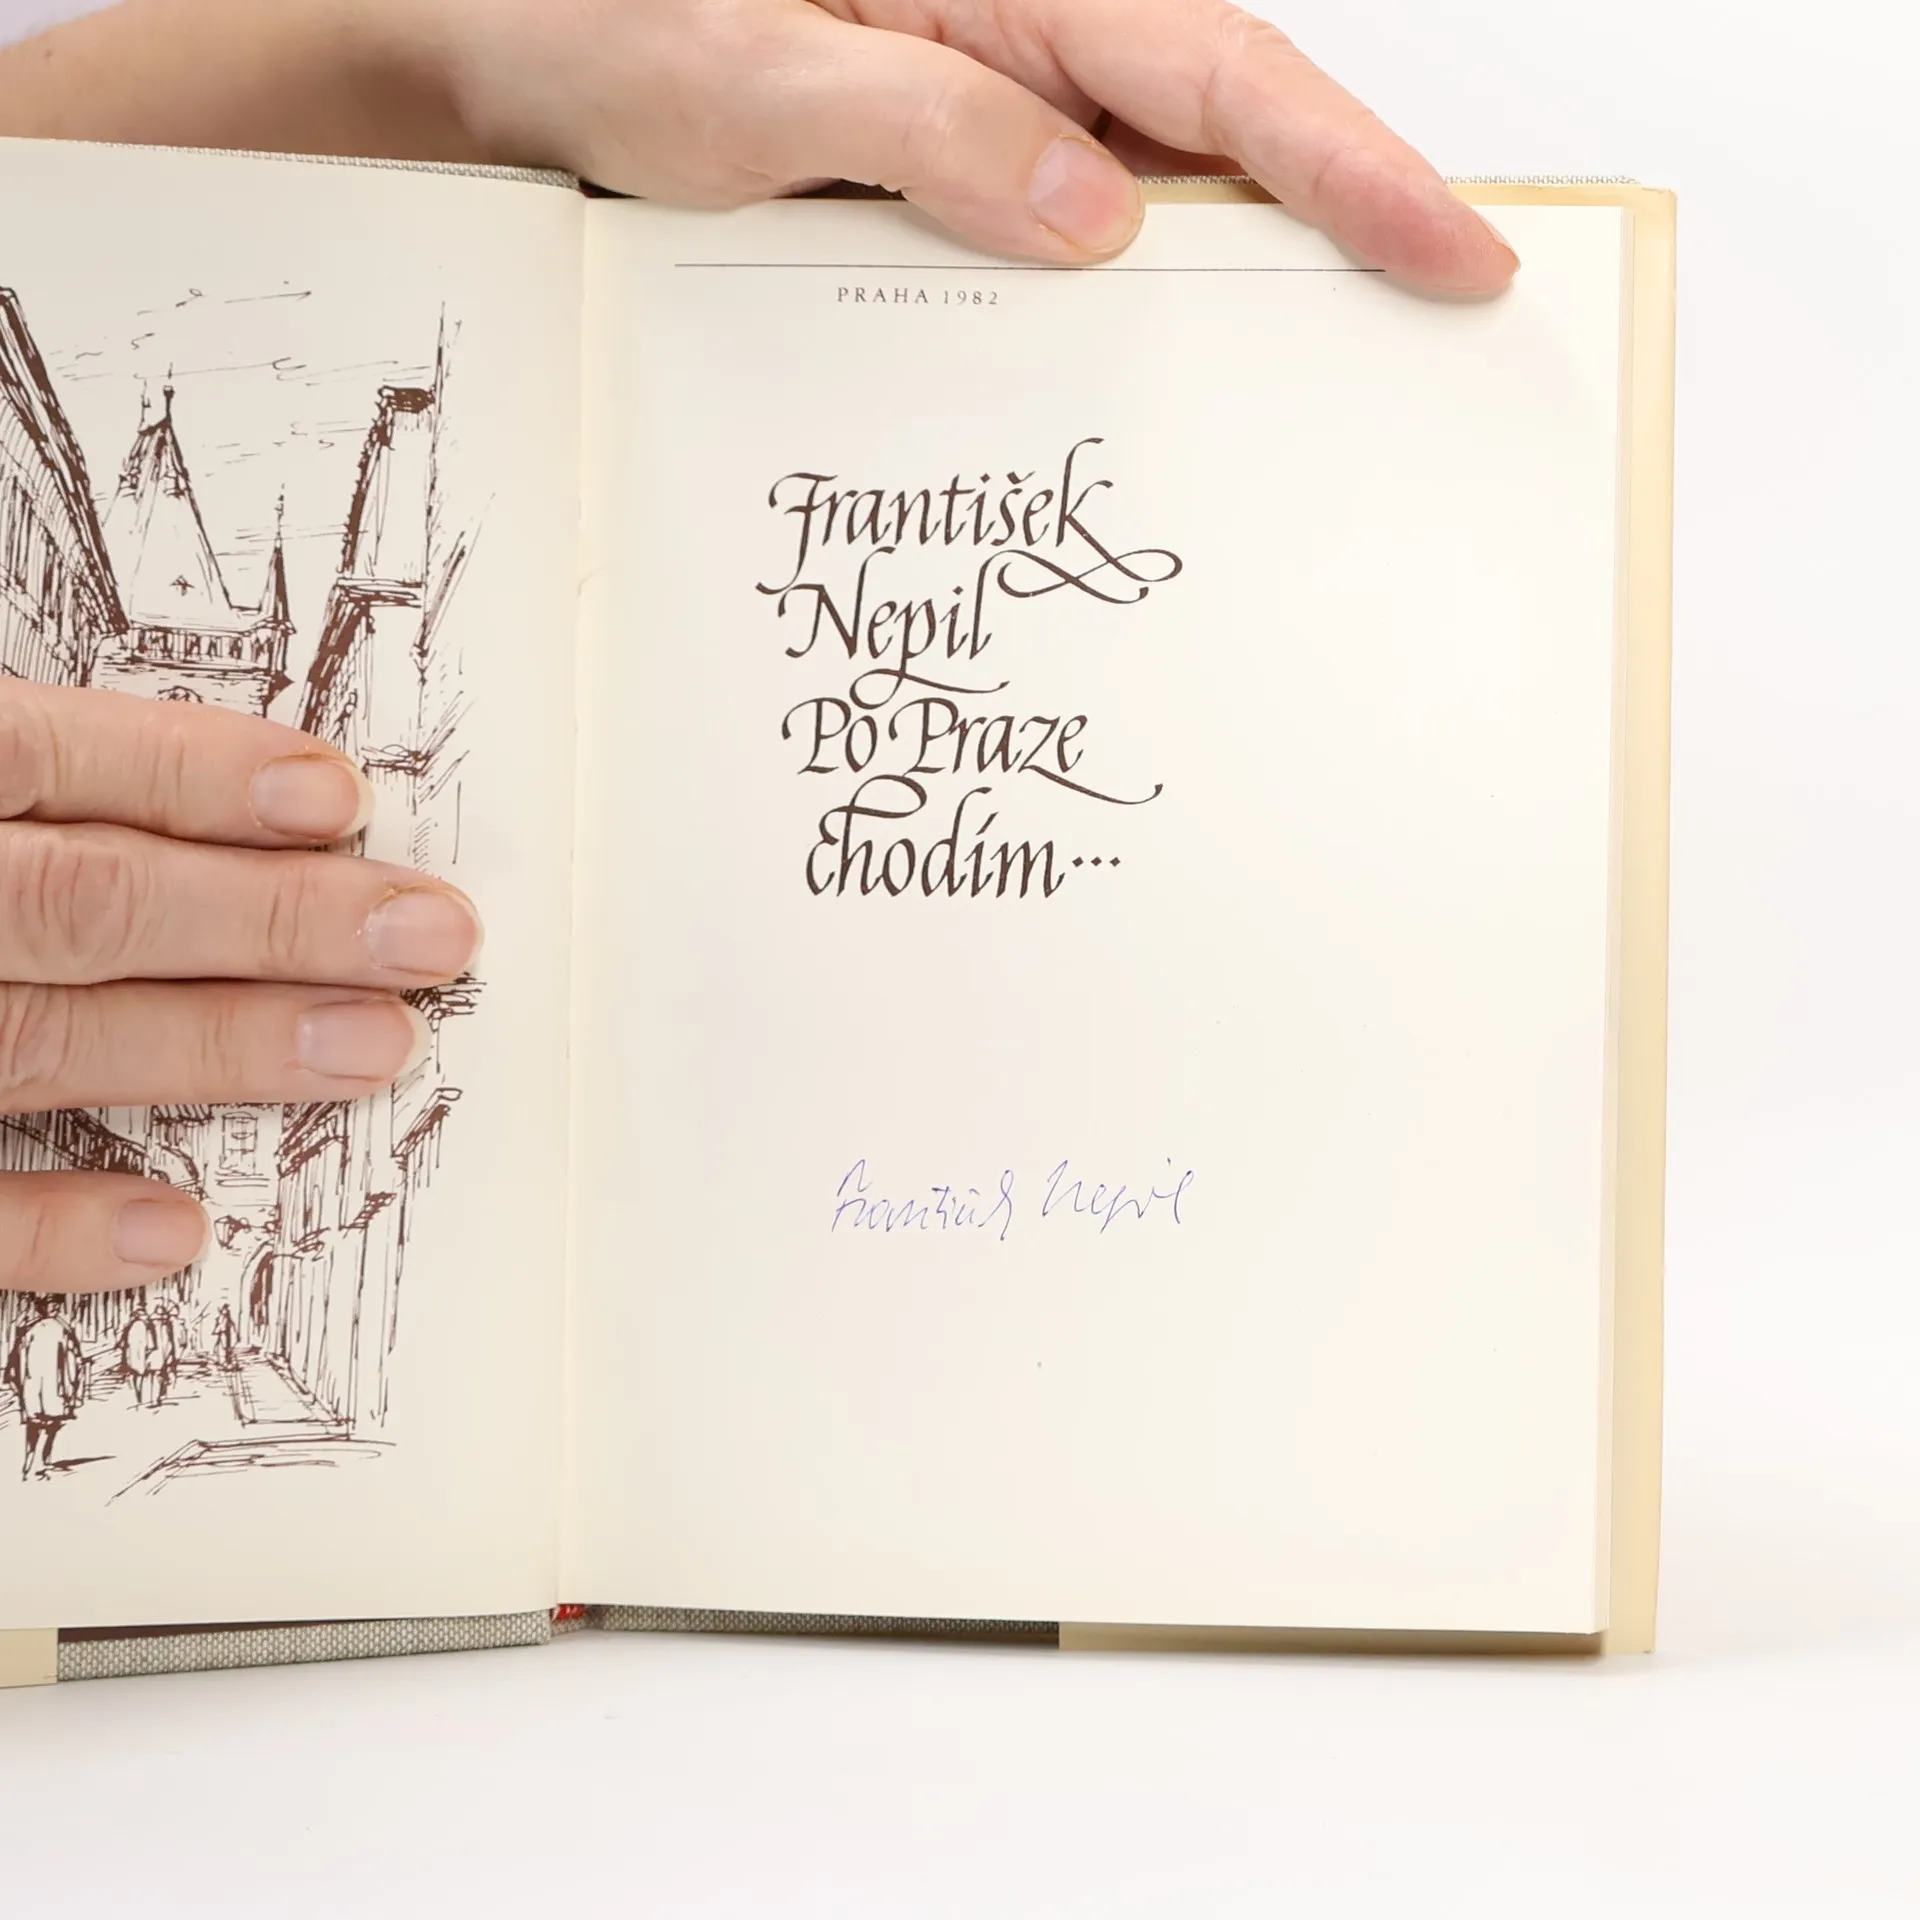 PRAHA 1982
František
Nepil
Po Praze
chodím...
František Nepil